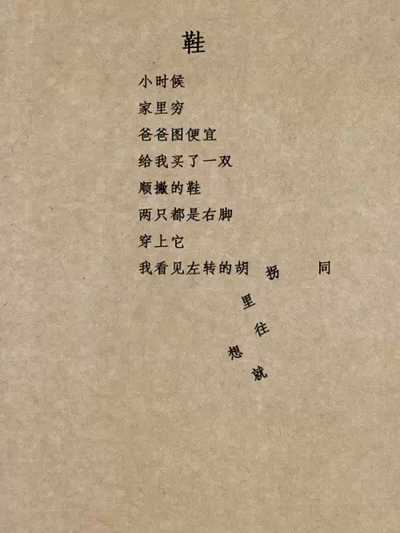 鞋
小时候
家里穷
爸爸图便宜
给我买了一双
顺撇的鞋
两只都是右脚
穿上它
我看见左转的胡同
就想往里拐